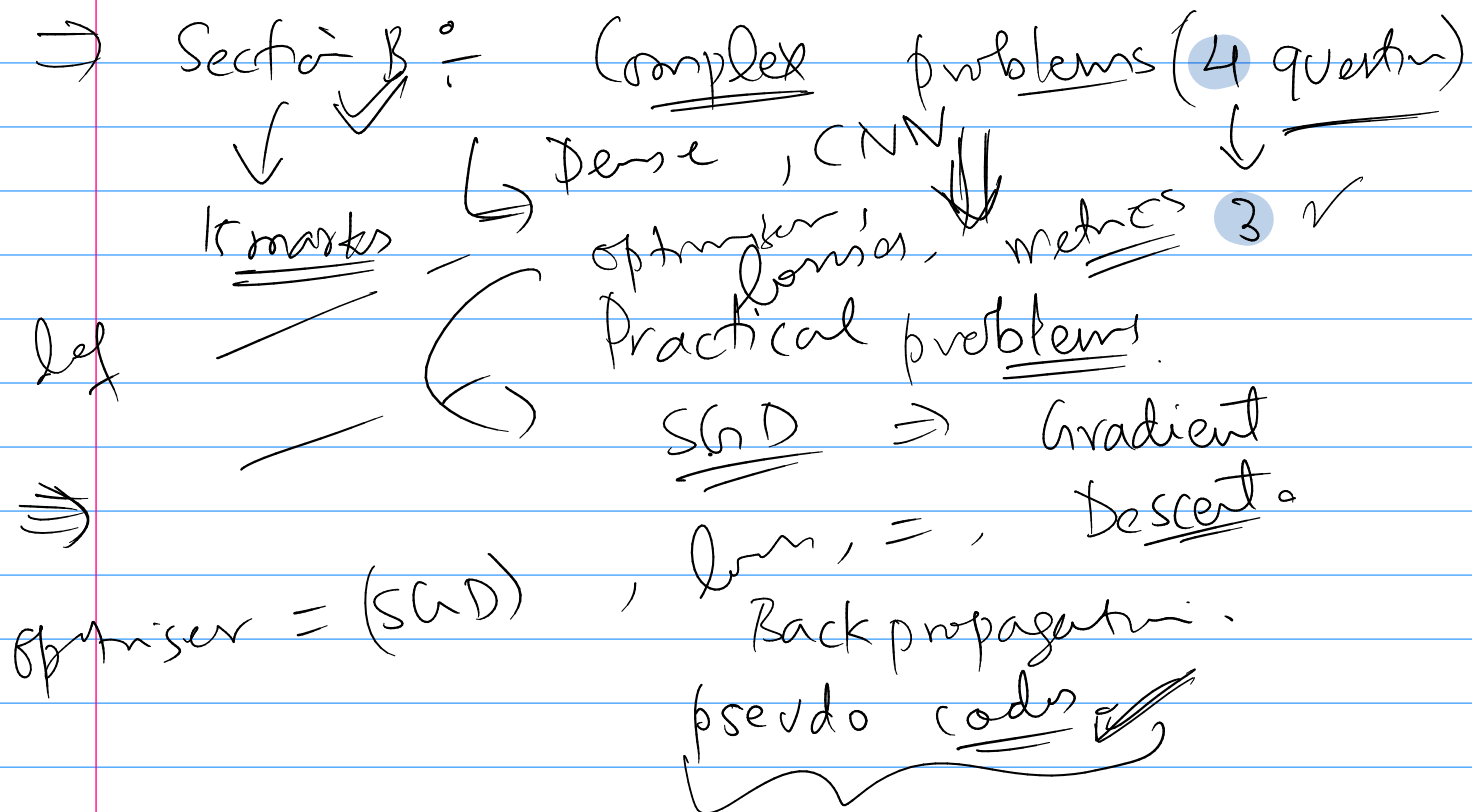 ⇒ Section B ÷ Complex problems (4 question)
Dense, CNN
15 marks optimiser, losses, metrics 3 ✓
Practical problems.
def
SGD ⇒ Gradient
Descent.
⇒ loss, =,
optimiser = (SGD),
Backpropagation.
pseudo codes